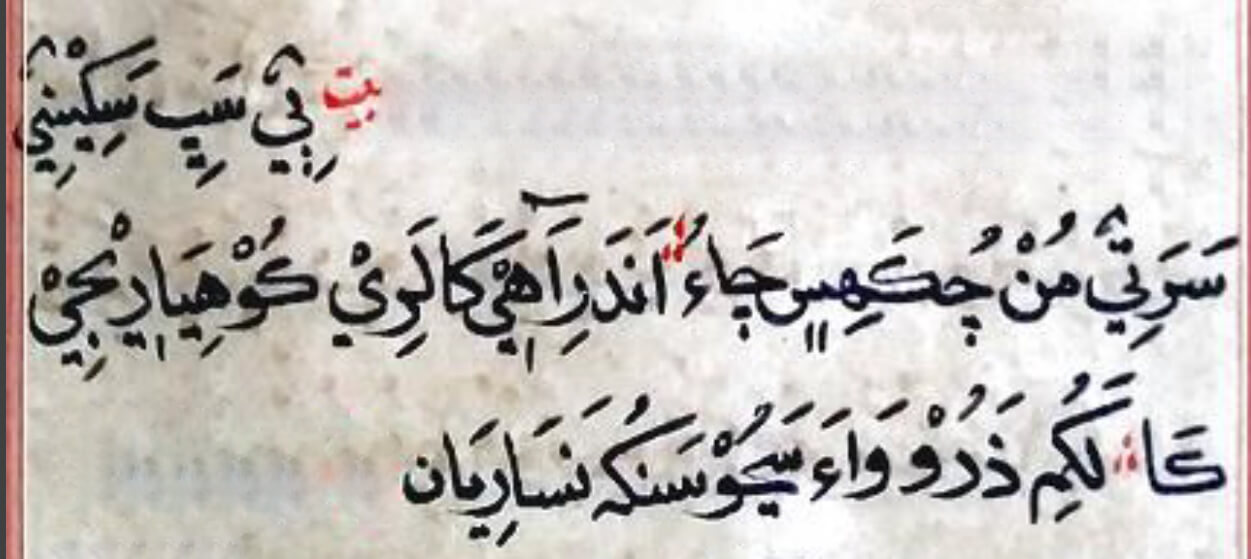 بيت ٻِي سَڀِ سَکِيُنِي
سَرَتِي مُنْ جُکَهِسٍ جَاءُ اَندَرِ آهي کَا لَرِيْ کُوْهِيَارِجِيْ
کَا لَکُمِ ذَرُوْ وَاءَ سَڄُوْ سَنکَہ نَسَارِيَان